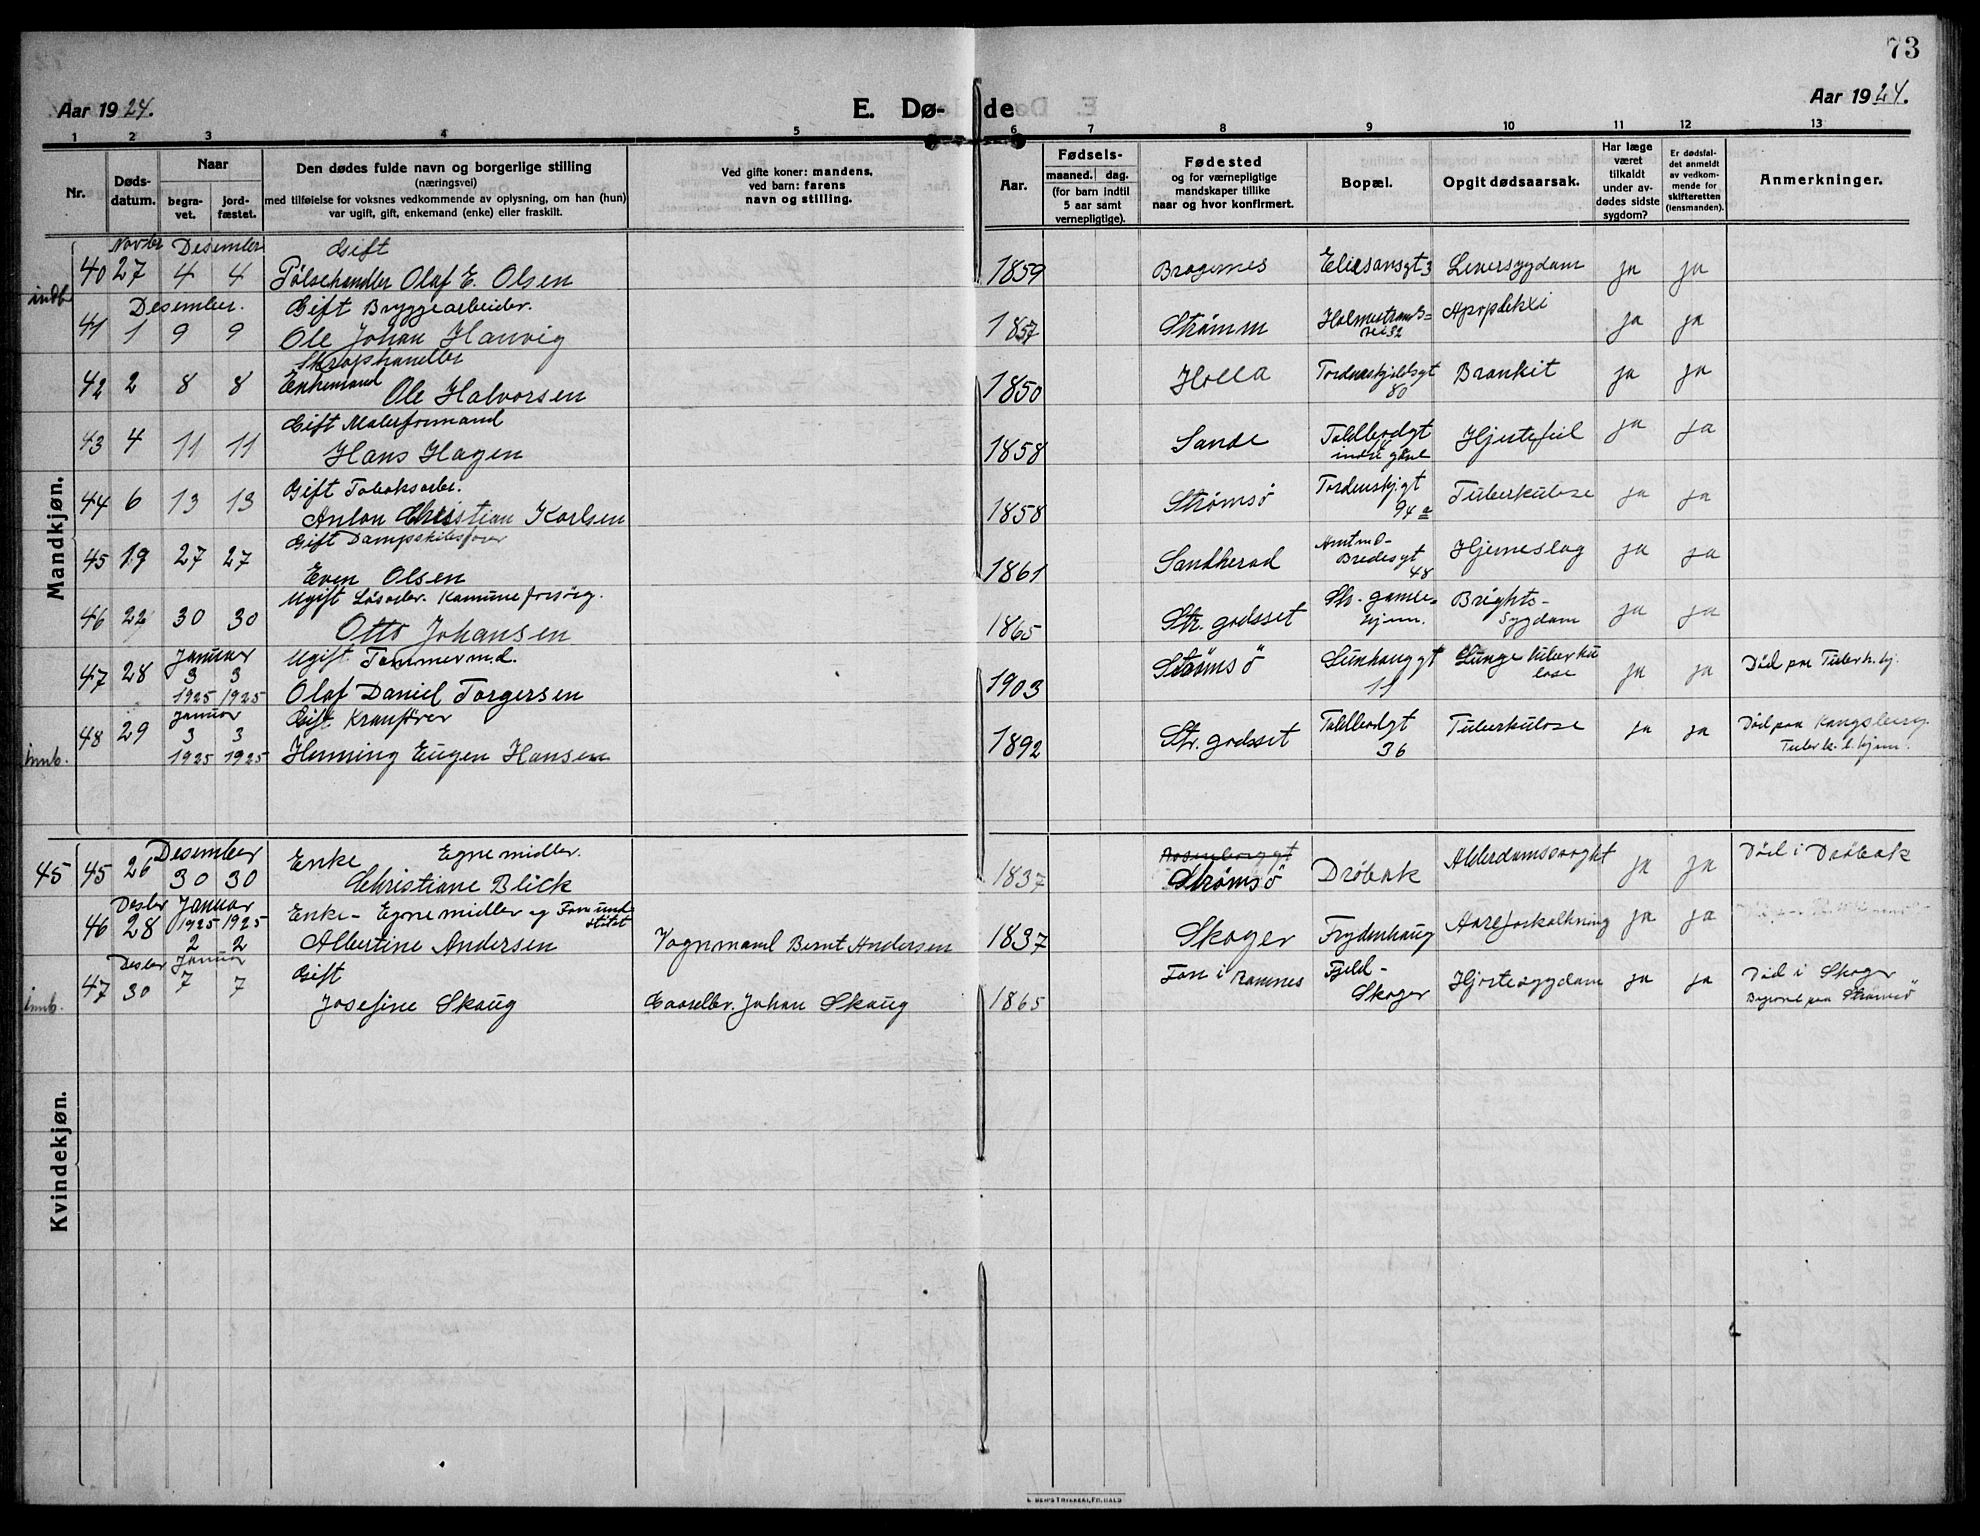 73
Aar 1924. E. Dø- de Aar 1924.
1 2 3 4 5 6 7 8 9 10 11 12 13
Nr.
Døds-
datum.
Naar
begra-
vet.
jord-
fæstet.
Den dødes fulde navn og borgerlige stilling
(næringsvei)
med tilføielse for voksnes vedkommende av oplysning, om han (hun)
var ugift, gift, enkemand (enke) eller fraskilt.
Ved gifte koner: mandens,
ved barn: farens
navn og stilling.
Aar.
Fødsels-
maaned. dag.
(for barn indtil
5 aar samt
vernepligtige).
Fødested
og for værnepligtige
mandskaper tillike
naar og hvor konfirmert.
Bopæl.
Opgit dødsaarsak.
Har læge
været
tilkaldt
under av-
dødes sidste
sygdom?
Er dødsfal-
det anmeldt
av vedkom-
mende for
skifteretten
(lensmanden).
Anmerkninger.
Mandkjøn.
Novbr Desember Gift
40 27 4 4 Pølsehandler Olaf E. Olsen 1859 Bragernes Leversygdom ja ja
Desember. Gift Bryggearbeider.
41 1 9 9 Ole Johan Hanvig 1857 Strømm ja ja
Skraphandler
42 2 8 8 Enkemand Ole Halvorsen 1850 Holla Tordenskjoldsgt 80 Bronkit ja ja
Gift Malerformand
43 4 11 11 Hans Hagen 1858 Sande Toldbodgt Hjertefeil ja ja
Gift Tobaksarbr.
44 6 13 13 Anton Christian Karlsen 1858 Strømsö Tordenskj.gt 94 a Tuberkulose ja ja
Gift Dampskibsfører
45 19 27 27 Even Olsen 1861 Sandherad Bredesgt 48 Hjerneslag ja ja
Ugift Løsarbr. Komuneforsørg.
46 22 30 30 Otto Johansen 1865 Str. godsset Str. gamle- hjem. Brights- Sygdom ja ja
Januar Ugift Tømmermd.
47 28 3 3 1925 1925 Olaf Daniel Torgersen 1903 Strømsö 11 Lunge tuberku lose ja ja Död paa Tuberk.hj.
Januar Gift Kranfører
48 29 3 3 1925 1925 Henning Eugen Hansen 1892 Str. godsset Toldbodgt 36 Tuberkulose ja ja Död paa Kongsberg Tuberk. hjem.
innb.
Kvindekjøn.
Desember Enke Egne midler.
45 45 26 30 30 Christiane Blick 1837 Strømsö Drøbak ja ja Död i Drøbak
Desbr Januar Enke - Egne midler og
46 28 1925 1925 2 2 Albertine Andersen Vognmand Bernt Andersen 1837 Skoger Frydenhaug Aareforkalkning ja ja
Desbr Januar Gift
47 30 7 7 Josefine Skaug Johan Skaug 1865 Fon i Ramnes Fjeld- Skoger Hjertesygdom ja ja Död i Skoger
innb. Begravet paa Strømsö